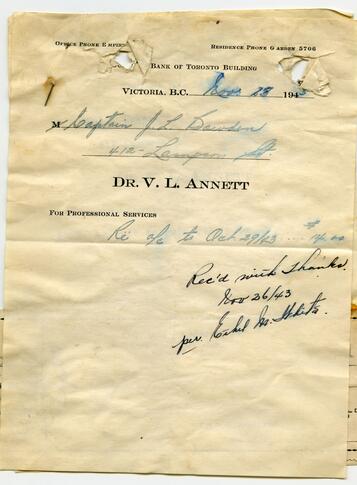 OFFICE PHONE EMPIRE
RESIDENCE PHONE GARDEN 5706
BANK OF TORONTO BUILDING
VICTORIA, B.C. Nov 18 1943
M Captain J L Dawson
412 - Lampson St.
DR. V. L. ANNETT
FOR PROFESSIONAL SERVICES
Re a/c to Oct 29/43 ... $ 14.00
Rec'd with thanks.
Nov 26/43
per.